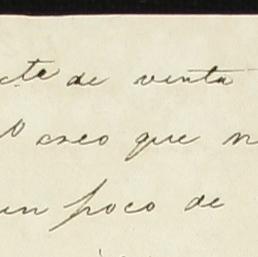 cte de venta
creo que
un poco de